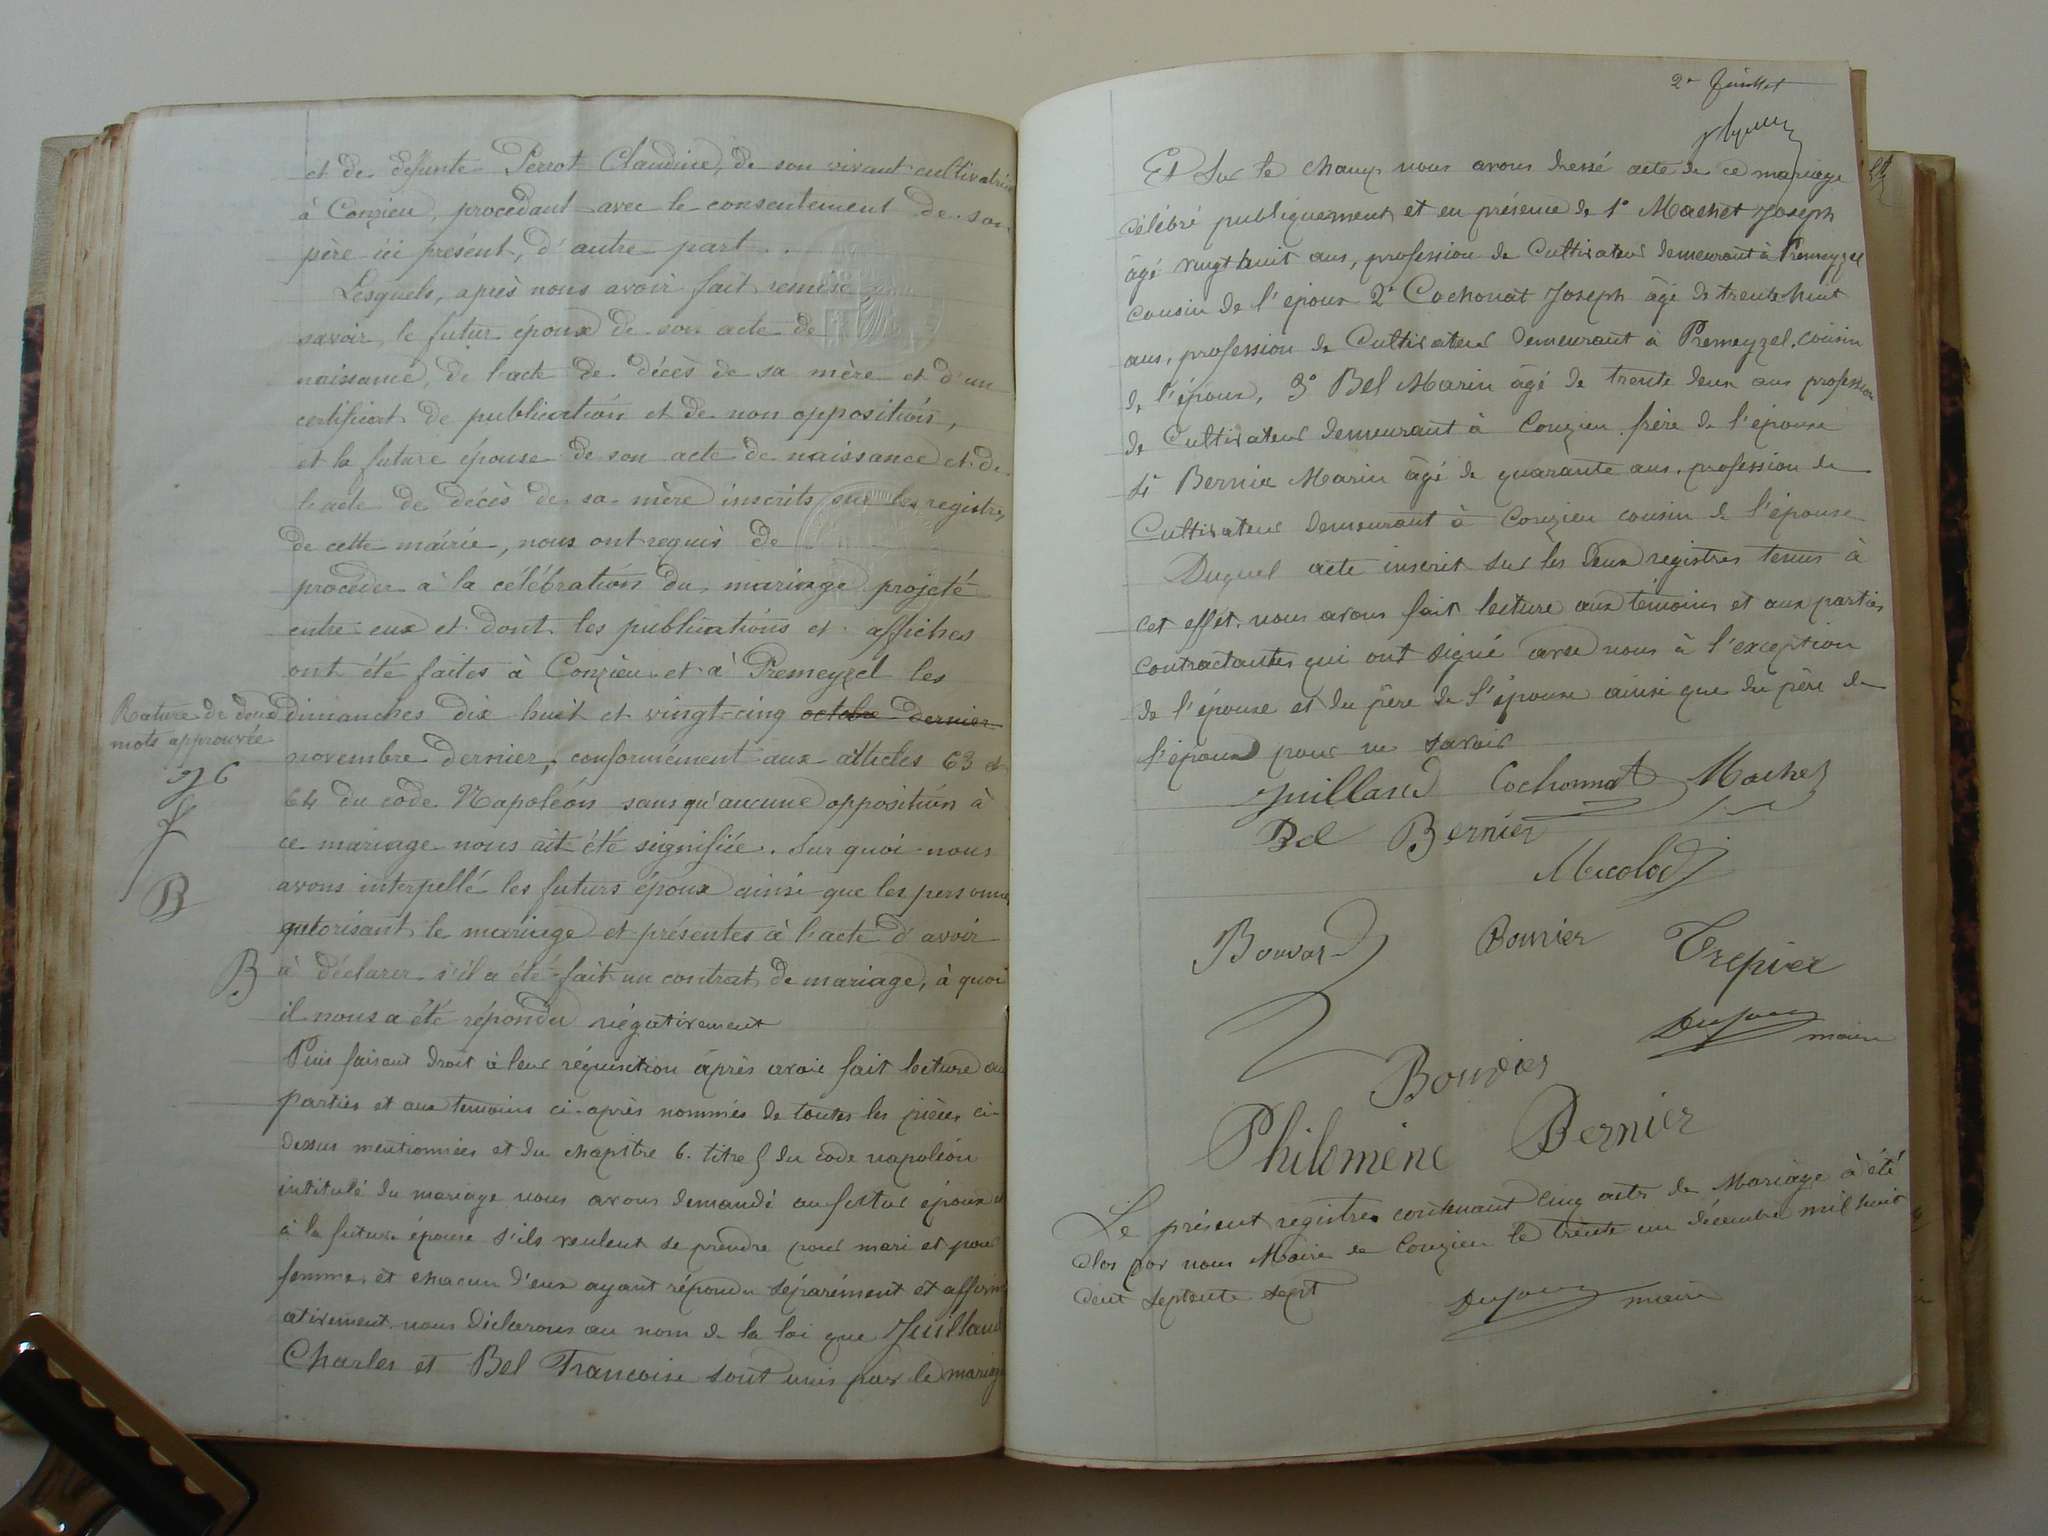 et de defunte Perrot Claudine, de son vivant cultivatrice
à Conzieu, procédant avec le consentement de son
père ici présent, d'autre part.
Lesquels, après nous avoir fait remise,
savoir, le futur époux de son acte de
naissance, de l'acte de décès de sa mère et d'un
certificat de publication et de non opposition,
et la future épouse de son acte de naissance et de
l'acte de décès de sa mère inscrits sur les registres
de cette mairie, nous ont requis de
procéder à la célébration du mariage projeté
entre eux et dont les publications et affiches
ont été faites à Conzieu et à Premeyzel les
Rature de deux
mots approuvée
dimanches dix huit et vingt-cinq octobre dernier
novembre dernier, conformément aux articles 63 et
64 du code Napoléon sans qu'aucune opposition à
ce mariage nous ait été signifiée. Sur quoi nous
B
avons interpellé les futurs époux ainsi que les personnes
autorisant le mariage et présentes à l'acte d'avoir
B
à déclarer s'il a été fait un contrat de mariage, à quoi
il nous a été répondu négativement
Puis faisant droit à leur réquisition après avoir fait lecture aux
parties et aux temoins ci-après nommés de toutes les pièces ci-
dessus mentionnées et du chapitre 6. titre 5 du code napoléon
intitulé du mariage nous avons demandé au futur époux et
à la future épouse s'ils veulent se prendre pour mari et pour
femme, et chacun d'eux ayant répondu séparément et affirm
ativement nous déclarons au nom de la loi que Juilland
Charles et Bel Francoise sont unis par le mariage
2e Juillet
Et sur le champ nous avons dressé acte de ce mariage
célébré publiquement et en présence de 1° Machet Joseph
âgé vingt huit ans, profession de Cultivateur demeurant à Premeyzel
cousin de l'époux 2° Cochonat Joseph âgé de trente huit
ans, profession de Cultivateur demeurant à Premeyzel. cousin
de l'époux, 3° Bel Marin âgé de trente deux ans profession
de Cultivateur demeurant à Conzieu frère de l'épouse
4° Bernier Marin âgé de quarante ans. profession de
Cultivateur demeurant à Conzieu cousin de l'épouse
Duquel acte inscrit sur les deux registres tenus à
cet effet. nous avons fait lecture aux témoins et aux parties
contractantes qui ont signé avec nous à l'exception
de l'épouse et du père de l'épouse ainsi que du père de
l'époux pour ne savoir
Juilland Cochonnat Machet
Bel Bernier
Micolod
Bouvard Bouvier Trepier
Dufour maire
Bouvier
Philomène Bernier
Le présent registre contenant cinq acts de Mariage à été
clos par nous Maire de Conzieu le trente un décembre mil huit
cent septente sept
Dufour maire